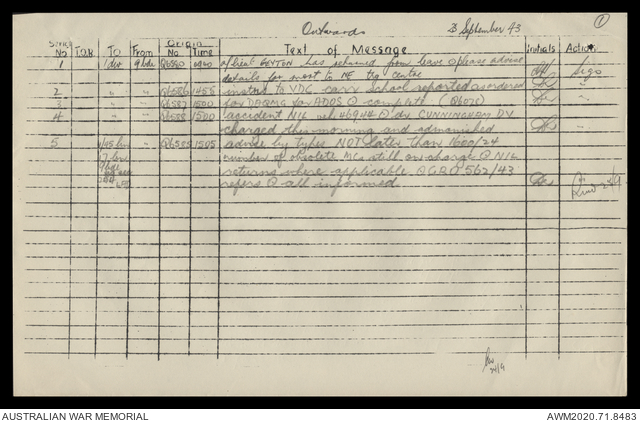 Onwards 3 September 43 1
Serial No T.O.R. To From Origin No Time Text of Message Initials Action
1 1 div 9 bde Q6580 has returned from leave please advise Sigs
details for mov t to NE trg centre
2 " " Q6586 1455 instrs to VDG carr School reported as ordered "
3 " " Q6587 1500 for DAQMG for ADOS complete "
4 " " Q6588 1500 accident NIL veh 46944 dr CUNNINGHAM DV "
charged this morning and admonished
5 Q6585 1505 advise by types NOT later than 1600/24
number of obsolete MCs still on charge NIL
9 bde returns where applicable GRO 562/43
refers all informed
24/9
AUSTRALIAN WAR MEMORIAL AWM2020.71.8483